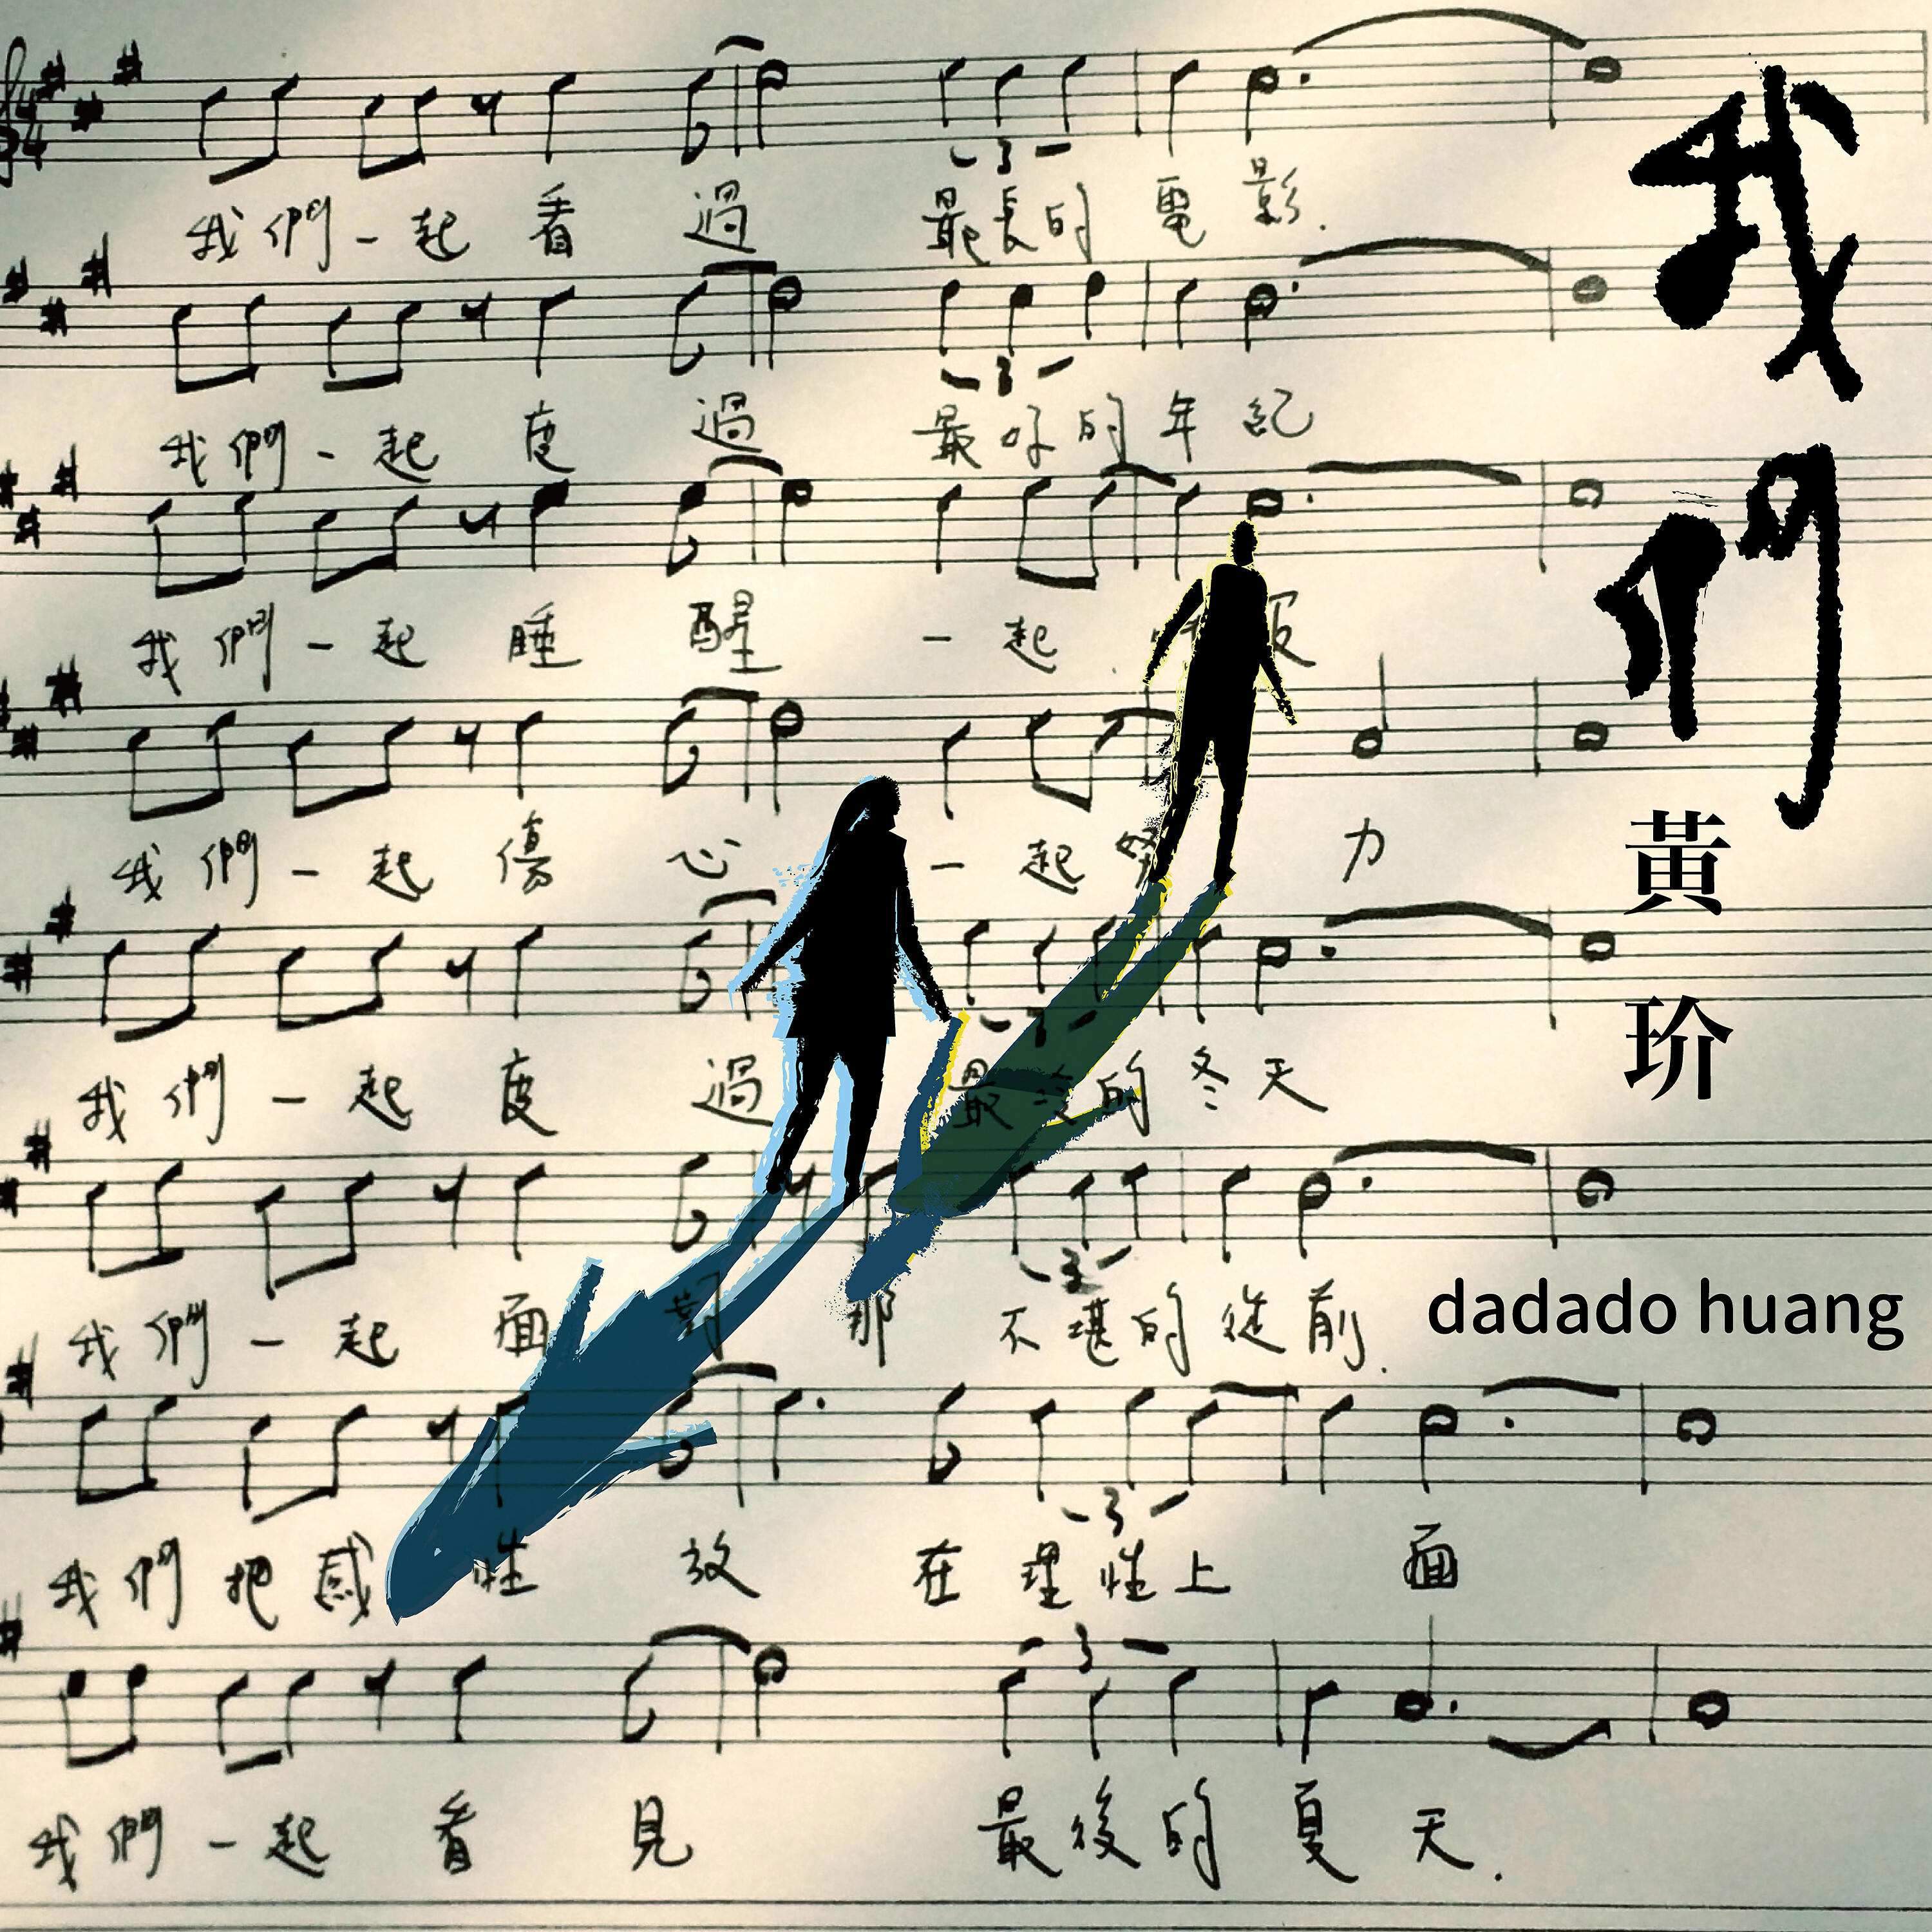 我們
黃玠
dadado huang
我們一起看過最長的電影.
我們一起度過最好的年紀
我們一起睡醒一起
我們一起傷心一起努力
我們一起度過最冷的冬天
我們一起面對那不堪的從前.
我們把感性放在理性上面
我們一起看見最後的夏天.